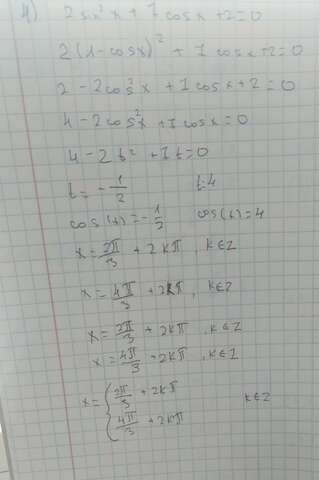 4) 2 sin²x + 7 cosx + 2 = 0
2(1 - cosx)² + 7 cosx + 2 = 0
2 - 2cos²x + 7 cosx + 2 = 0
4 - 2cos²x + 7 cosx = 0
4 - 2t² + 7t = 0
t = -1/2 t=4
cos(x) = -1/2 cos(x) = 4
x = 2π/3 + 2kπ, k∈Z
x = 4π/3 + 2kπ, k∈Z
x = 2π/3 + 2kπ, k∈Z
x = 4π/3 + 2kπ, k∈Z
x = { 2π/3 + 2kπ
4π/3 + 2kπ k∈Z